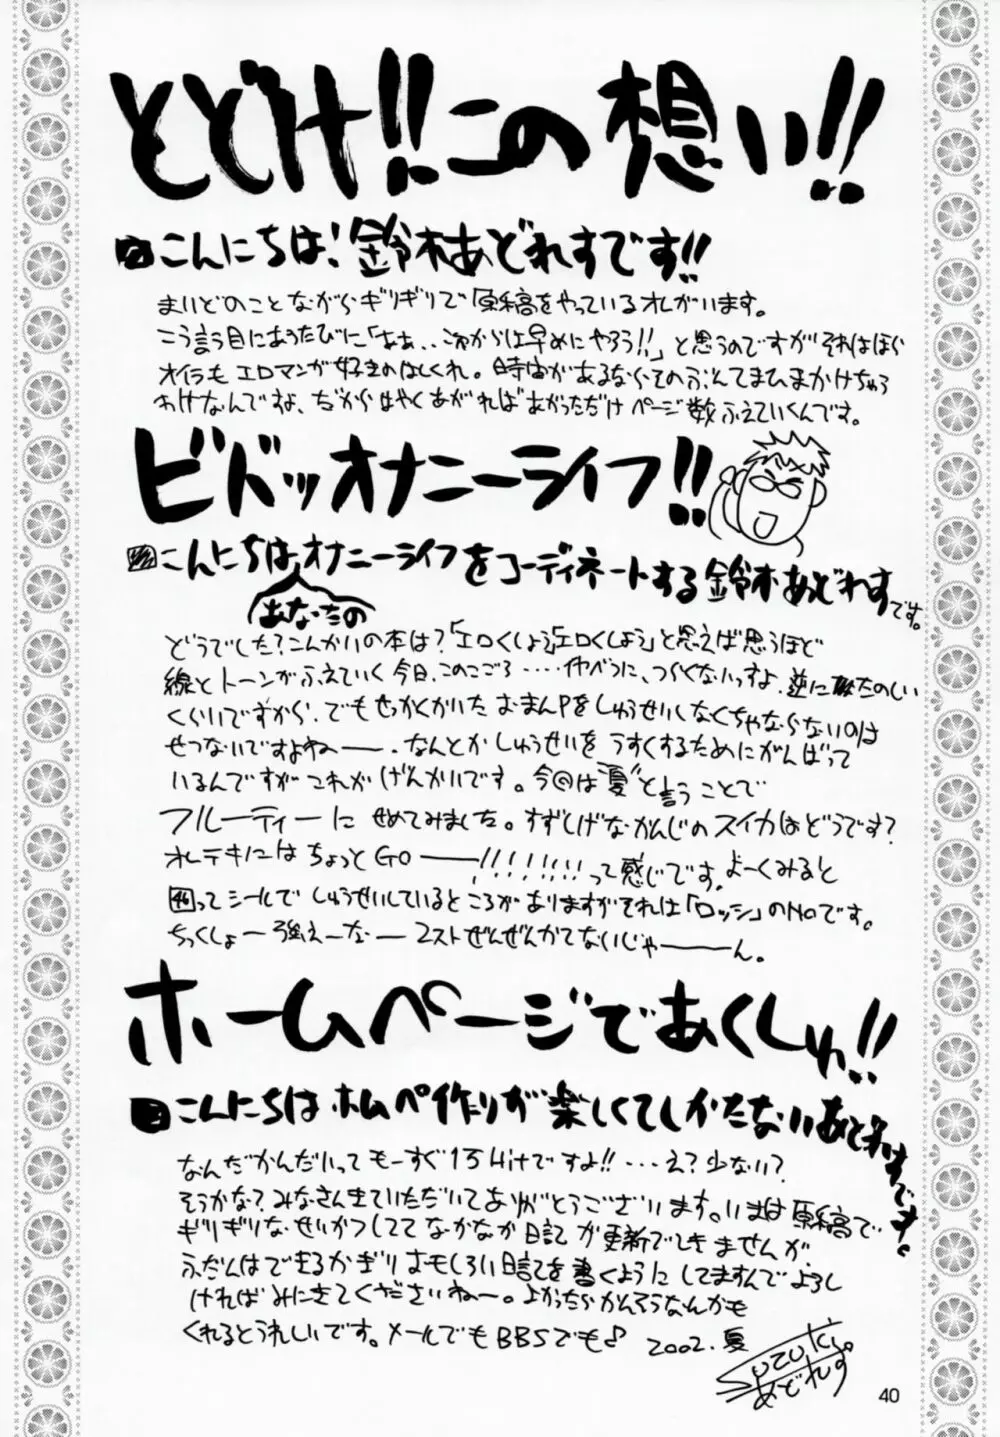 とどけ!!この想い!!
こんにちは!鈴木あどれすです!!
まいどのことながらギリギリで原稿をやっているオレがいます。
こう言う目にあうたびに「ああ、、これからは早めにやろう!!」と思うのですがそれはほら
オイラもエロマンガ好きのはしくれ。時間があるならそのぶんてまひまかけちゃう
わけなんですよ、だからはやくあがればあがっただけページ数ふえていくんです。
ビバッオナニーライフ!!
こんにちはオナニーライフをコーディネートする鈴木あどれすです。
あなたの
どうでした?こんかいの本は?「エロくしようエロくしよう」と思えば思うほど
線とトーンがふえていく今日、このごろ‥‥べつに、つらくないっすよ、逆にたのしい
くらいですから、でもせっかくかいたおまんPをしゅうせいしなくちゃならないのは
せつないですよねー、なんとかしゅうせいをうすくするためにがんばって
いるんですがこれがげんかいです。今回は"夏"と言うことで
フルーティーにせめてみました。すずしげなかんじのスイカはどうです?
オレテキにはちょっとGOー!!!!!!!って感じです。よーくみると
46ってシールでしゅうせいしているところがありますがそれは「ロッシ」のNoです。
ちっくしょー強えーなーストぜんぜんかてないじゃーん。
ホームページであくしゅ!!
こんにちはホムペ作りが楽しくてしかたないあどれすです。
なんだかんだいってもーすぐ1万Hitですよ!!‥‥え?少ない?
そうかな?みなさんきていただいてありがとうございます。いまは原稿で
ギリギリなせいかつしててなかなか日記が更新できませんが、
ふだんはできるかぎりおもしろい日記を書くようにしてますんでよろし
ければみにきてくださいねー。よかったらかんそうなんかも
くれるとうれしいです。メールでもBBSでも♪ 2002.夏
Suzuki
あどれす
40